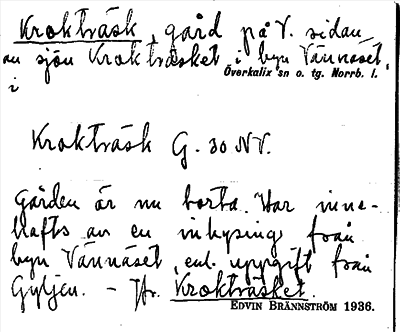 Krokträsk, gård på V. sidan
av sjön Krokträsket i byn Vännäset,
i Överkalix sn o. tg. Norrb. l.
Krokträsk G. 30 NV.
Gården är nu borta. Har inne-
hafts av en inhysing från
byn Vännäset, enl. uppgift från
Gyljen. – Jfr. Krokträsket.
EDVIN BRÄNNSTRÖM 1936.